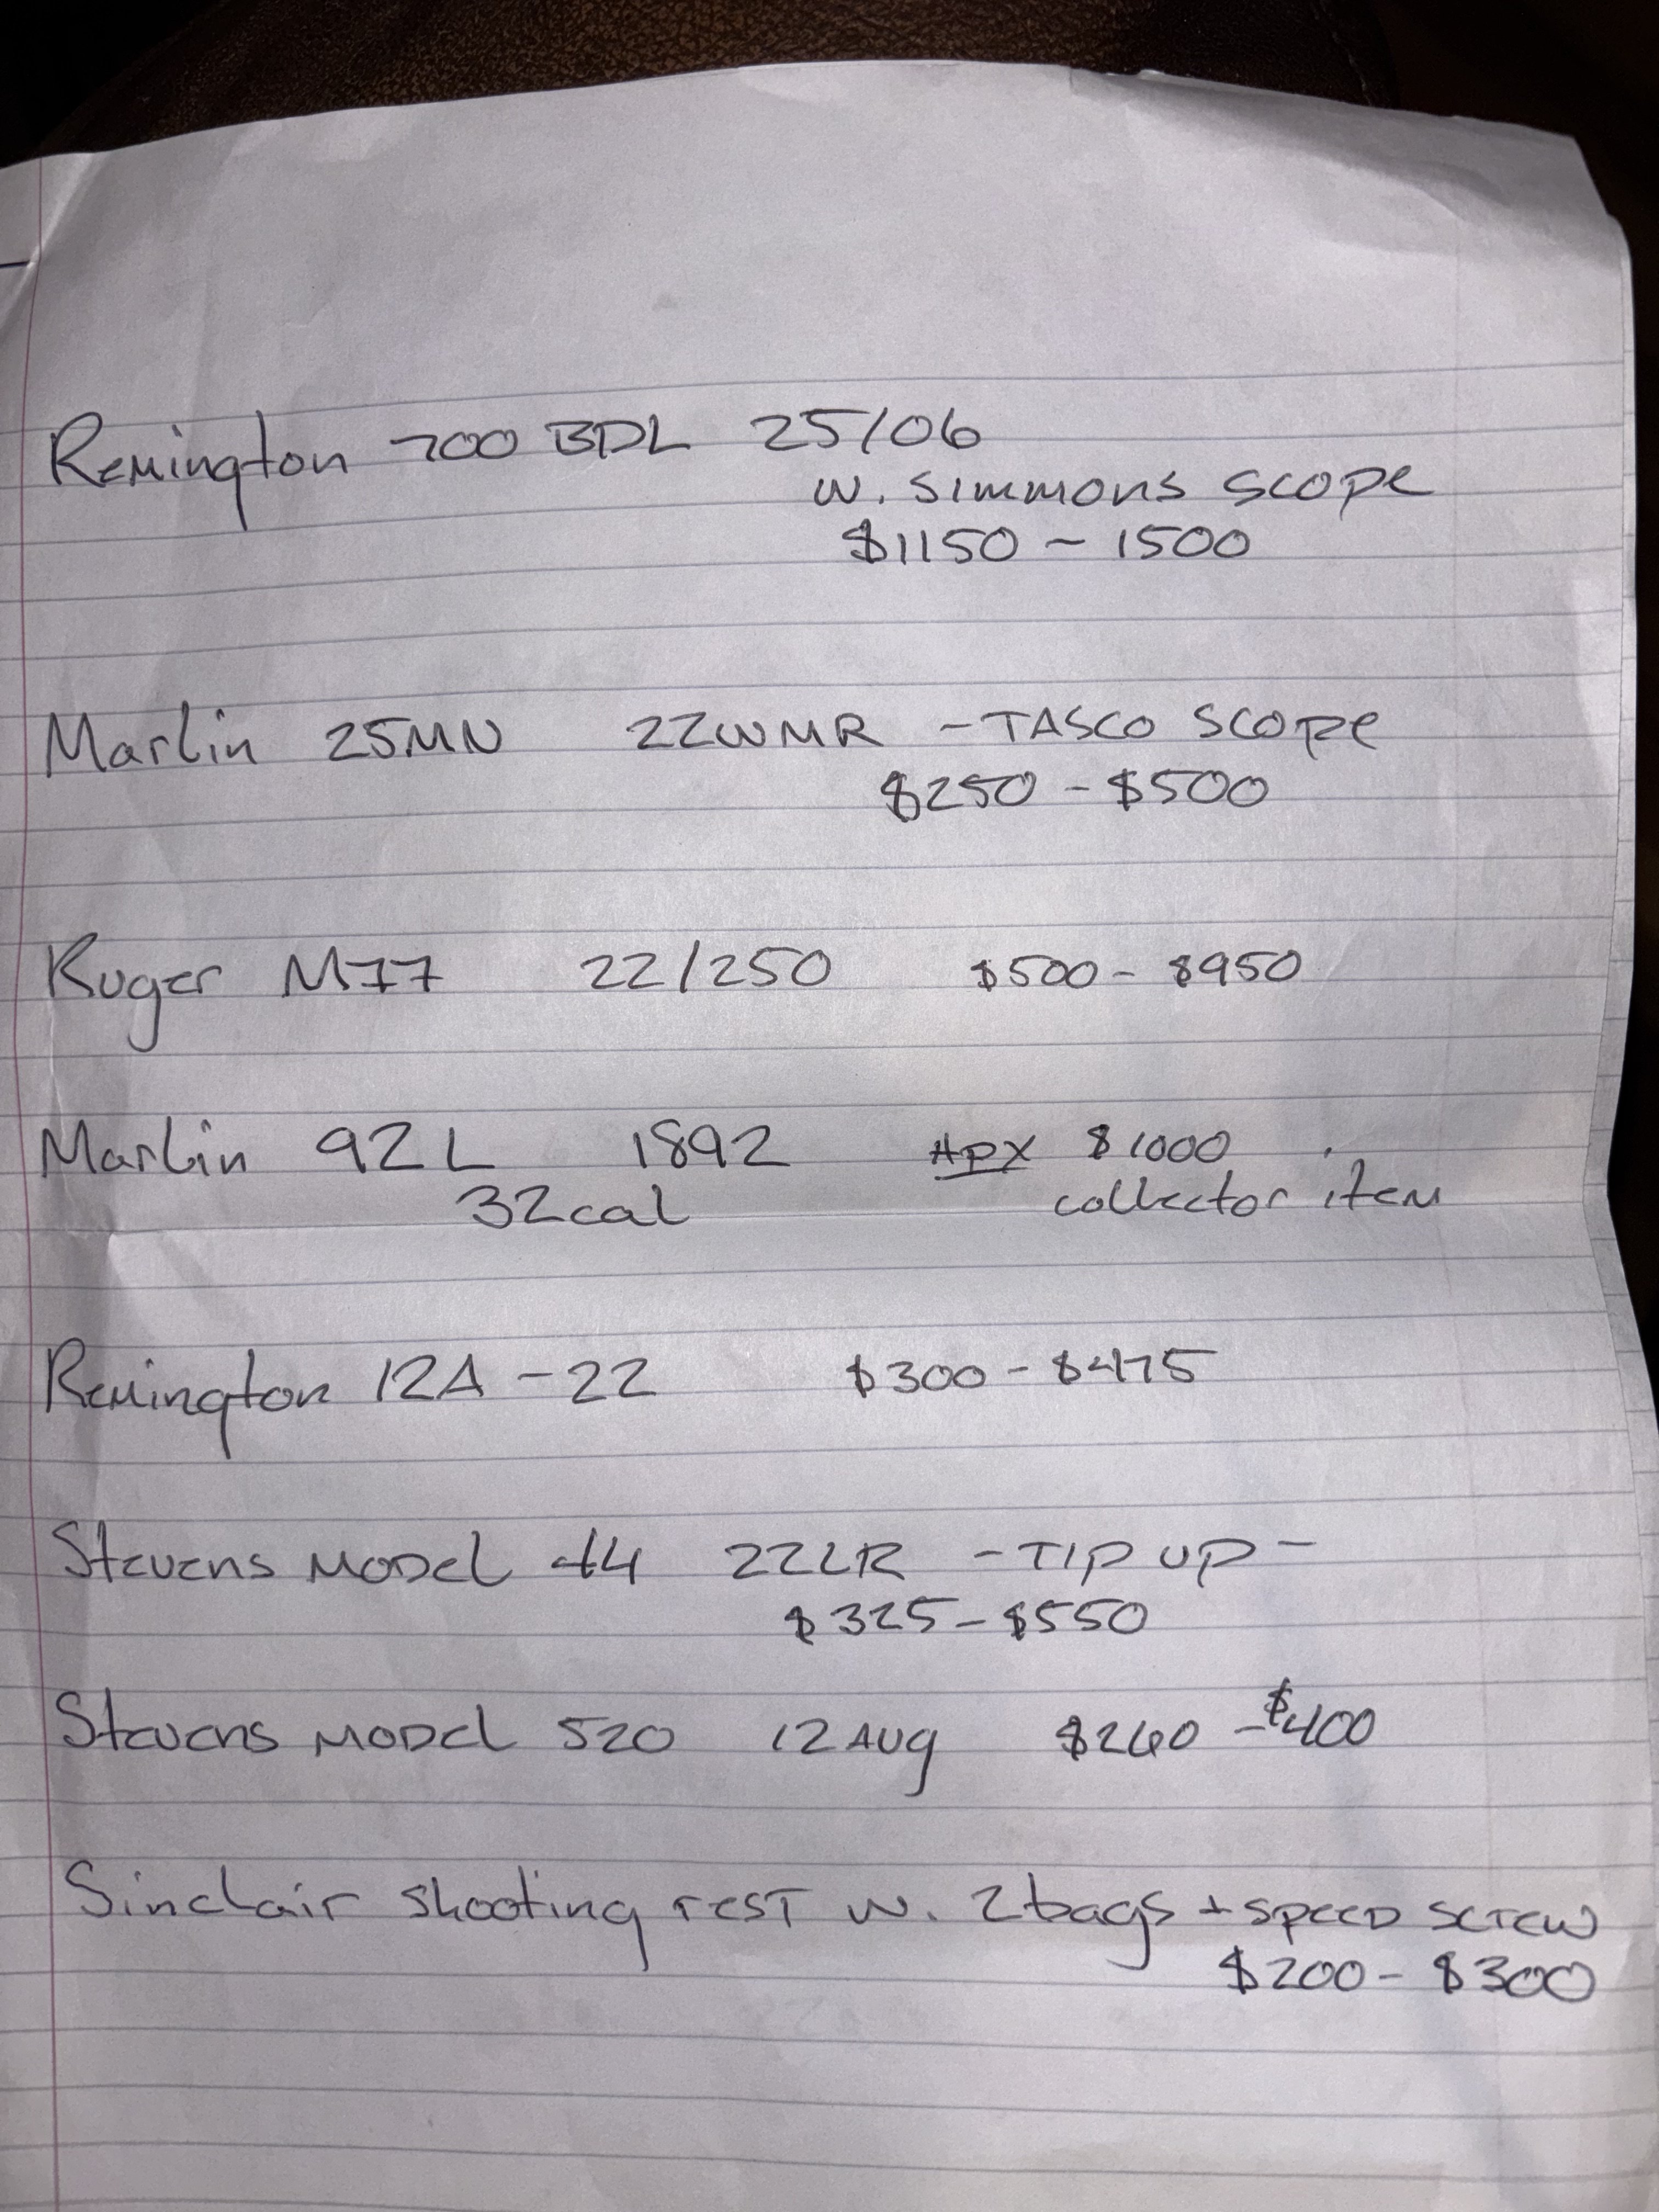 Remington 700 BDL 25/06
w. Simmons scope
$1150 - 1500
Marlin 25MN 22WMR - TASCO SCOPE
$250 - $500
Ruger M77 22/250 $500 - $950
Marlin 92 L 1892 Apx $1000
32cal collector item
Remington 12A - 22 $300 - $475
Stevens Model 44 22LR - TIP UP -
$325 - $550
Stevens Model 520 12 Aug $260 - $400
Sinclair shooting rest w. 2 bags + speed screw
$200 - $300